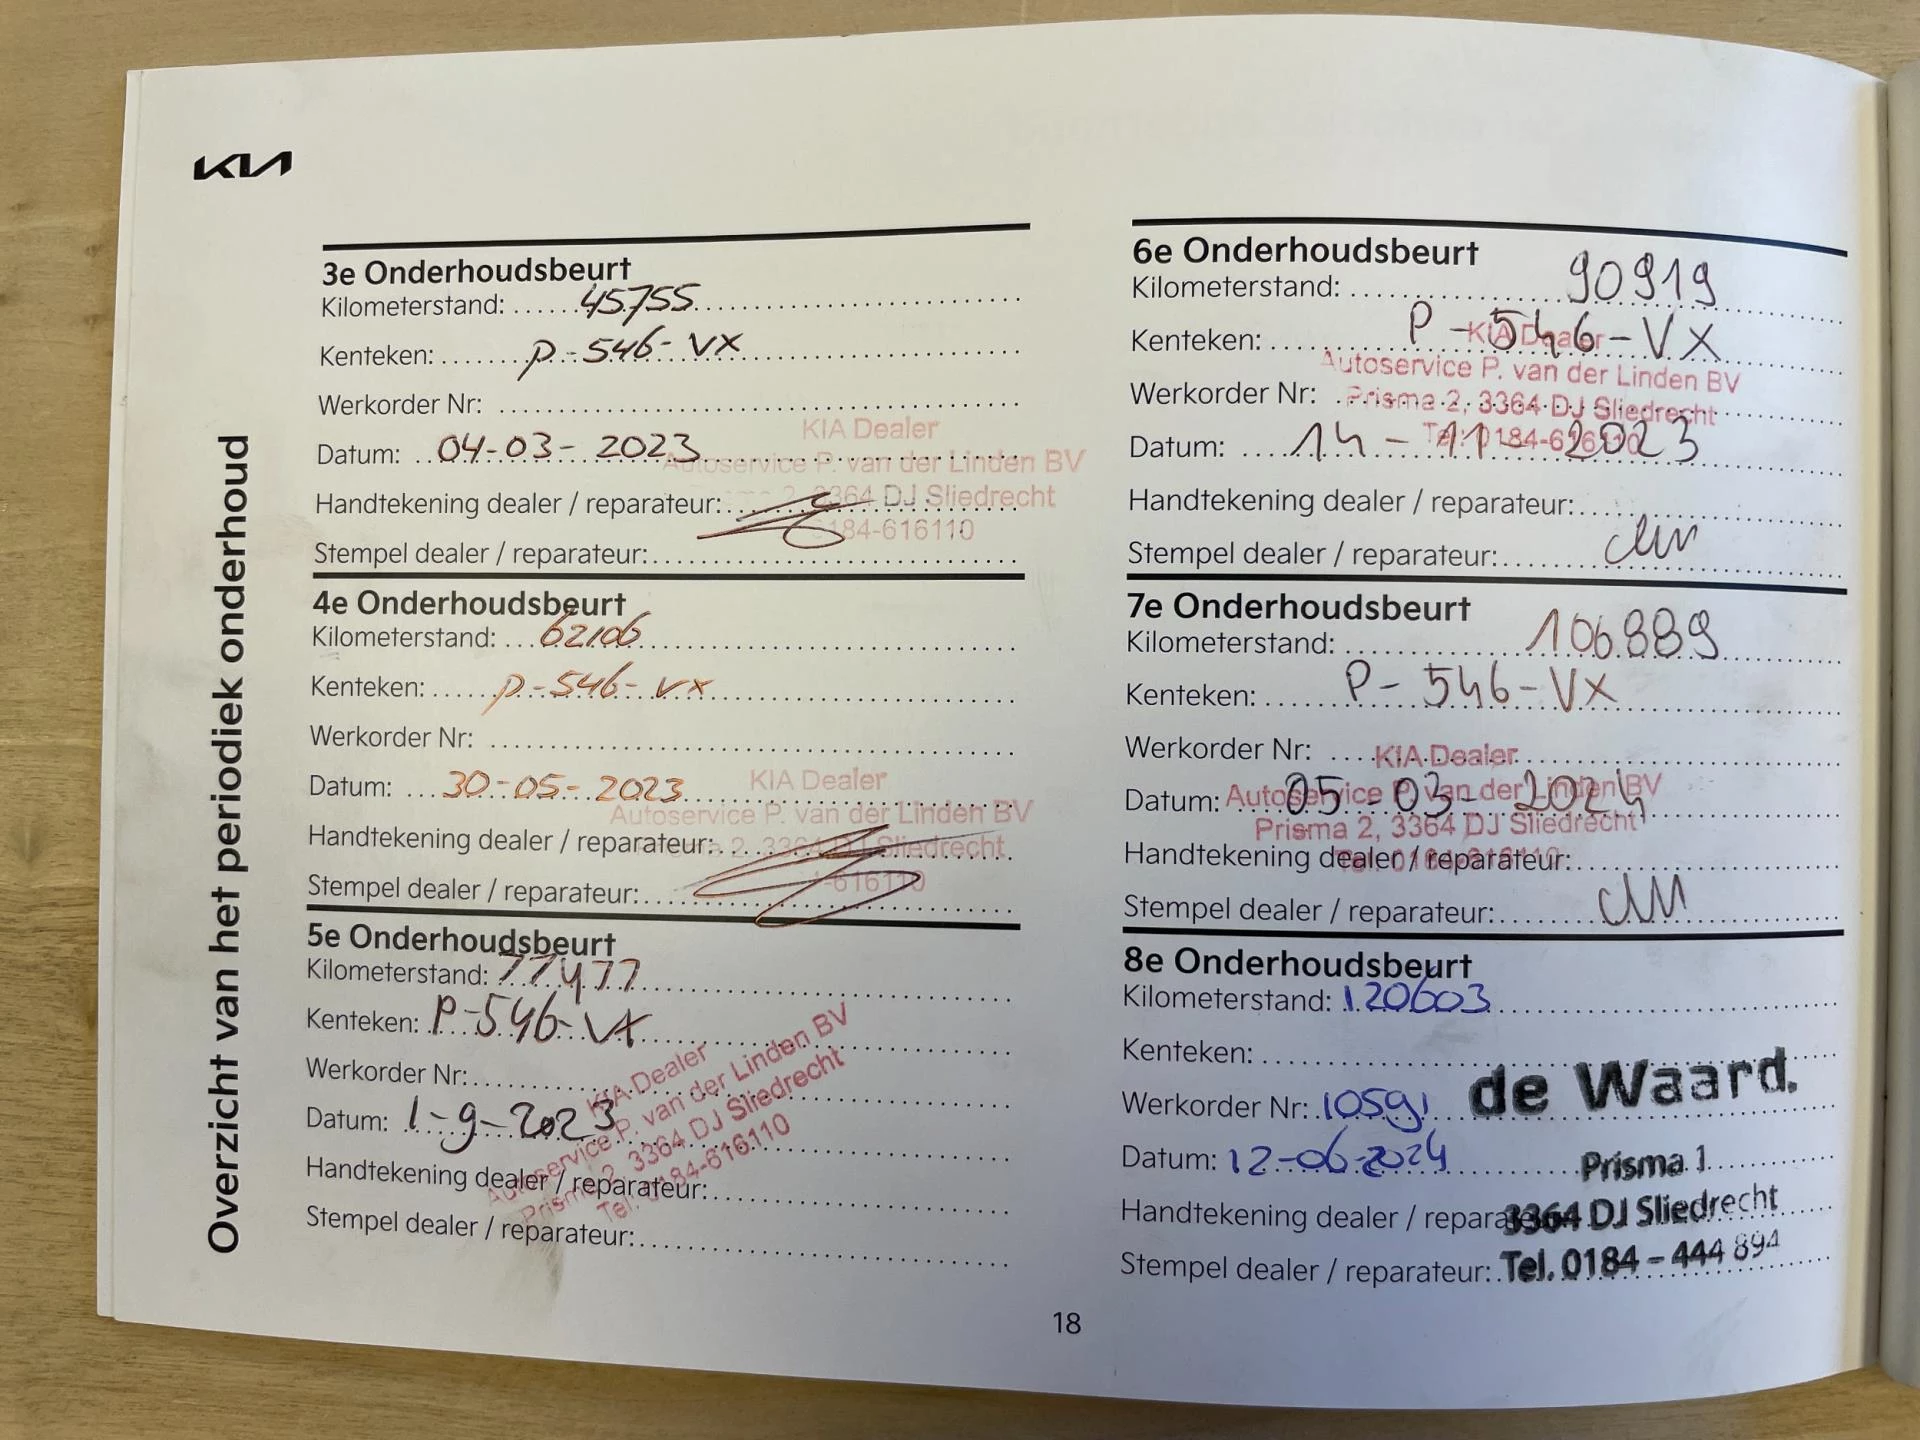 KIA
Overzicht van het periodiek onderhoud
3e Onderhoudsbeurt
Kilometerstand: 45755
Kenteken: P-546-VX
Werkorder Nr:
Datum: 04-03-2023
Handtekening dealer / reparateur:
Stempel dealer / reparateur:
KIA Dealer
Autoservice P. van der Linden BV
2, 3364 DJ Sliedrecht
0184-616110
4e Onderhoudsbeurt
Kilometerstand: 62106
Kenteken: P-546-VX
Werkorder Nr:
Datum: 30-05-2023
Handtekening dealer / reparateur:
Stempel dealer / reparateur:
KIA Dealer
Autoservice P. van der Linden BV
2, 3364 DJ Sliedrecht
-616110
5e Onderhoudsbeurt
Kilometerstand: 77477
Kenteken: P-546-VX
Werkorder Nr:
Datum: 1-9-2023
Handtekening dealer / reparateur:
Stempel dealer / reparateur:
KIA Dealer
Autoservice P. van der Linden BV
Prisma 2, 3364 DJ Sliedrecht
Tel. 0184-616110
6e Onderhoudsbeurt
Kilometerstand: 90919
Kenteken: P-546-VX
Werkorder Nr:
Datum: 14-11-2023
Handtekening dealer / reparateur:
Stempel dealer / reparateur:
KIA Dealer
Autoservice P. van der Linden BV
Prisma 2, 3364 DJ Sliedrecht
Tel. 0184-616110
7e Onderhoudsbeurt
Kilometerstand: 106889
Kenteken: P-546-VX
Werkorder Nr:
Datum: 05-03-2024
Handtekening dealer / reparateur:
Stempel dealer / reparateur:
KIA Dealer
Autoservice P. van der Linden BV
Prisma 2, 3364 DJ Sliedrecht
Tel. 0184-616110
8e Onderhoudsbeurt
Kilometerstand: 120603
Kenteken:
Werkorder Nr: 10591
Datum: 12-06-2024
Handtekening dealer / reparateur:
Stempel dealer / reparateur:
de Waard.
Prisma 1
3364 DJ Sliedrecht
Tel. 0184-444 894
18